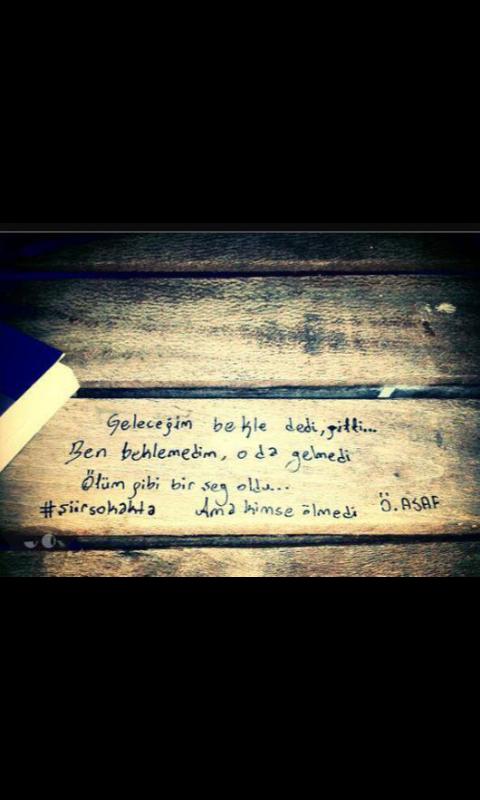 Geleceğim bekle dedi, gitti...
Ben beklemedim, o da gelmedi
Ölüm gibi bir şey oldu...
#şiirsokakta Ama kimse ölmedi Ö. ASAF